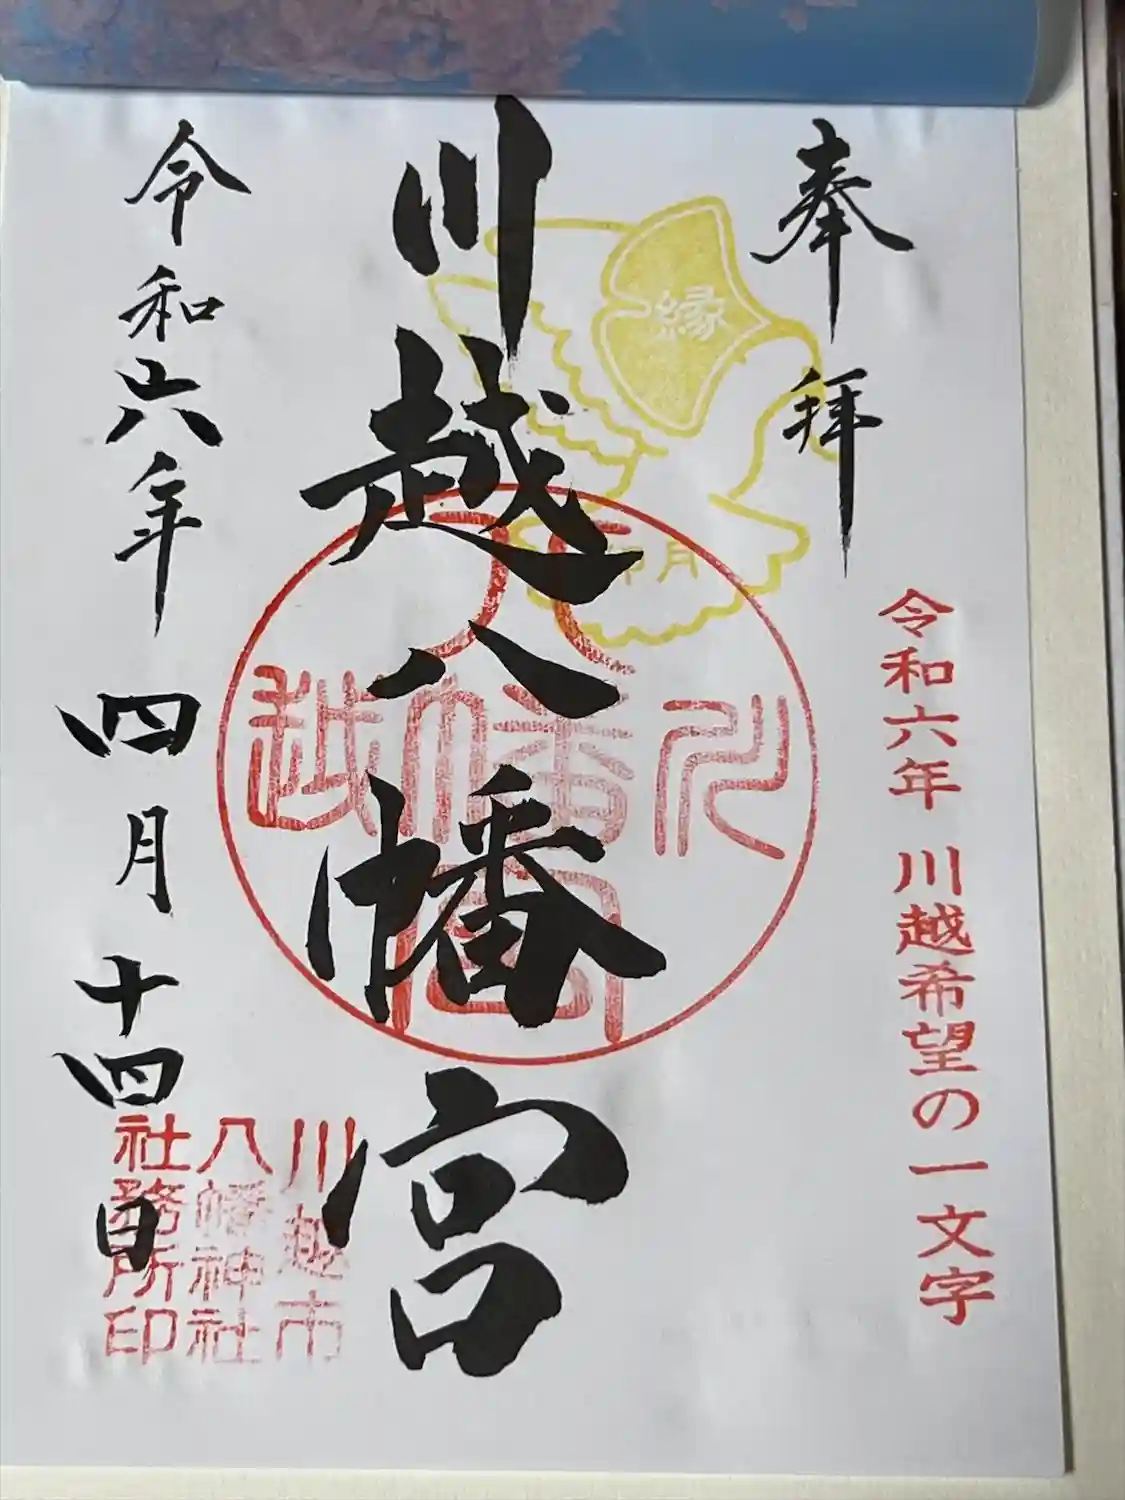 奉拝
令和六年 川越希望の一文字
縁
卯月
川越八幡宮
川越八幡宮
川越市
八幡神社
社務所印
令和六年四月十四日